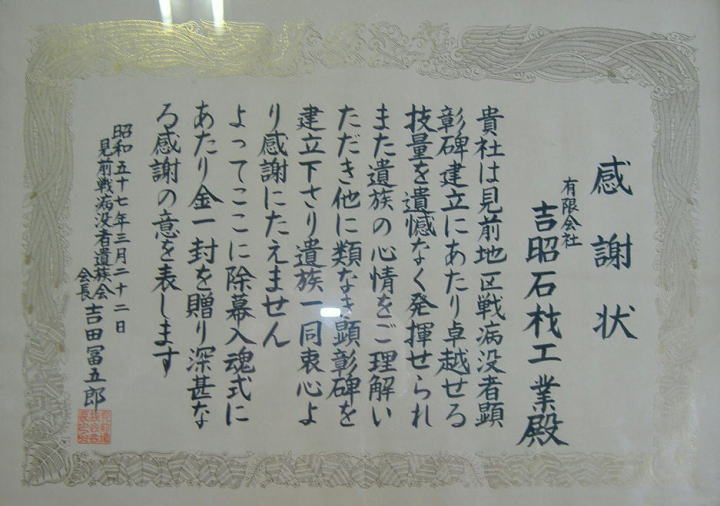 感謝状
有限会社
吉昭石材工業殿
貴社は見前地区戦病没者顕
彰碑建立にあたり卓越せる
技量を遺憾なく発揮せられ
また遺族の心情をご理解い
ただき他に類なき顕彰碑を
建立下さり遺族一同衷心よ
り感謝にたえません
よってここに除幕入魂式に
あたり金一封を贈り深甚な
る感謝の意を表します
昭和五十七年三月二十二日
見前戦病没者遺族会
会長 吉田冨五郎